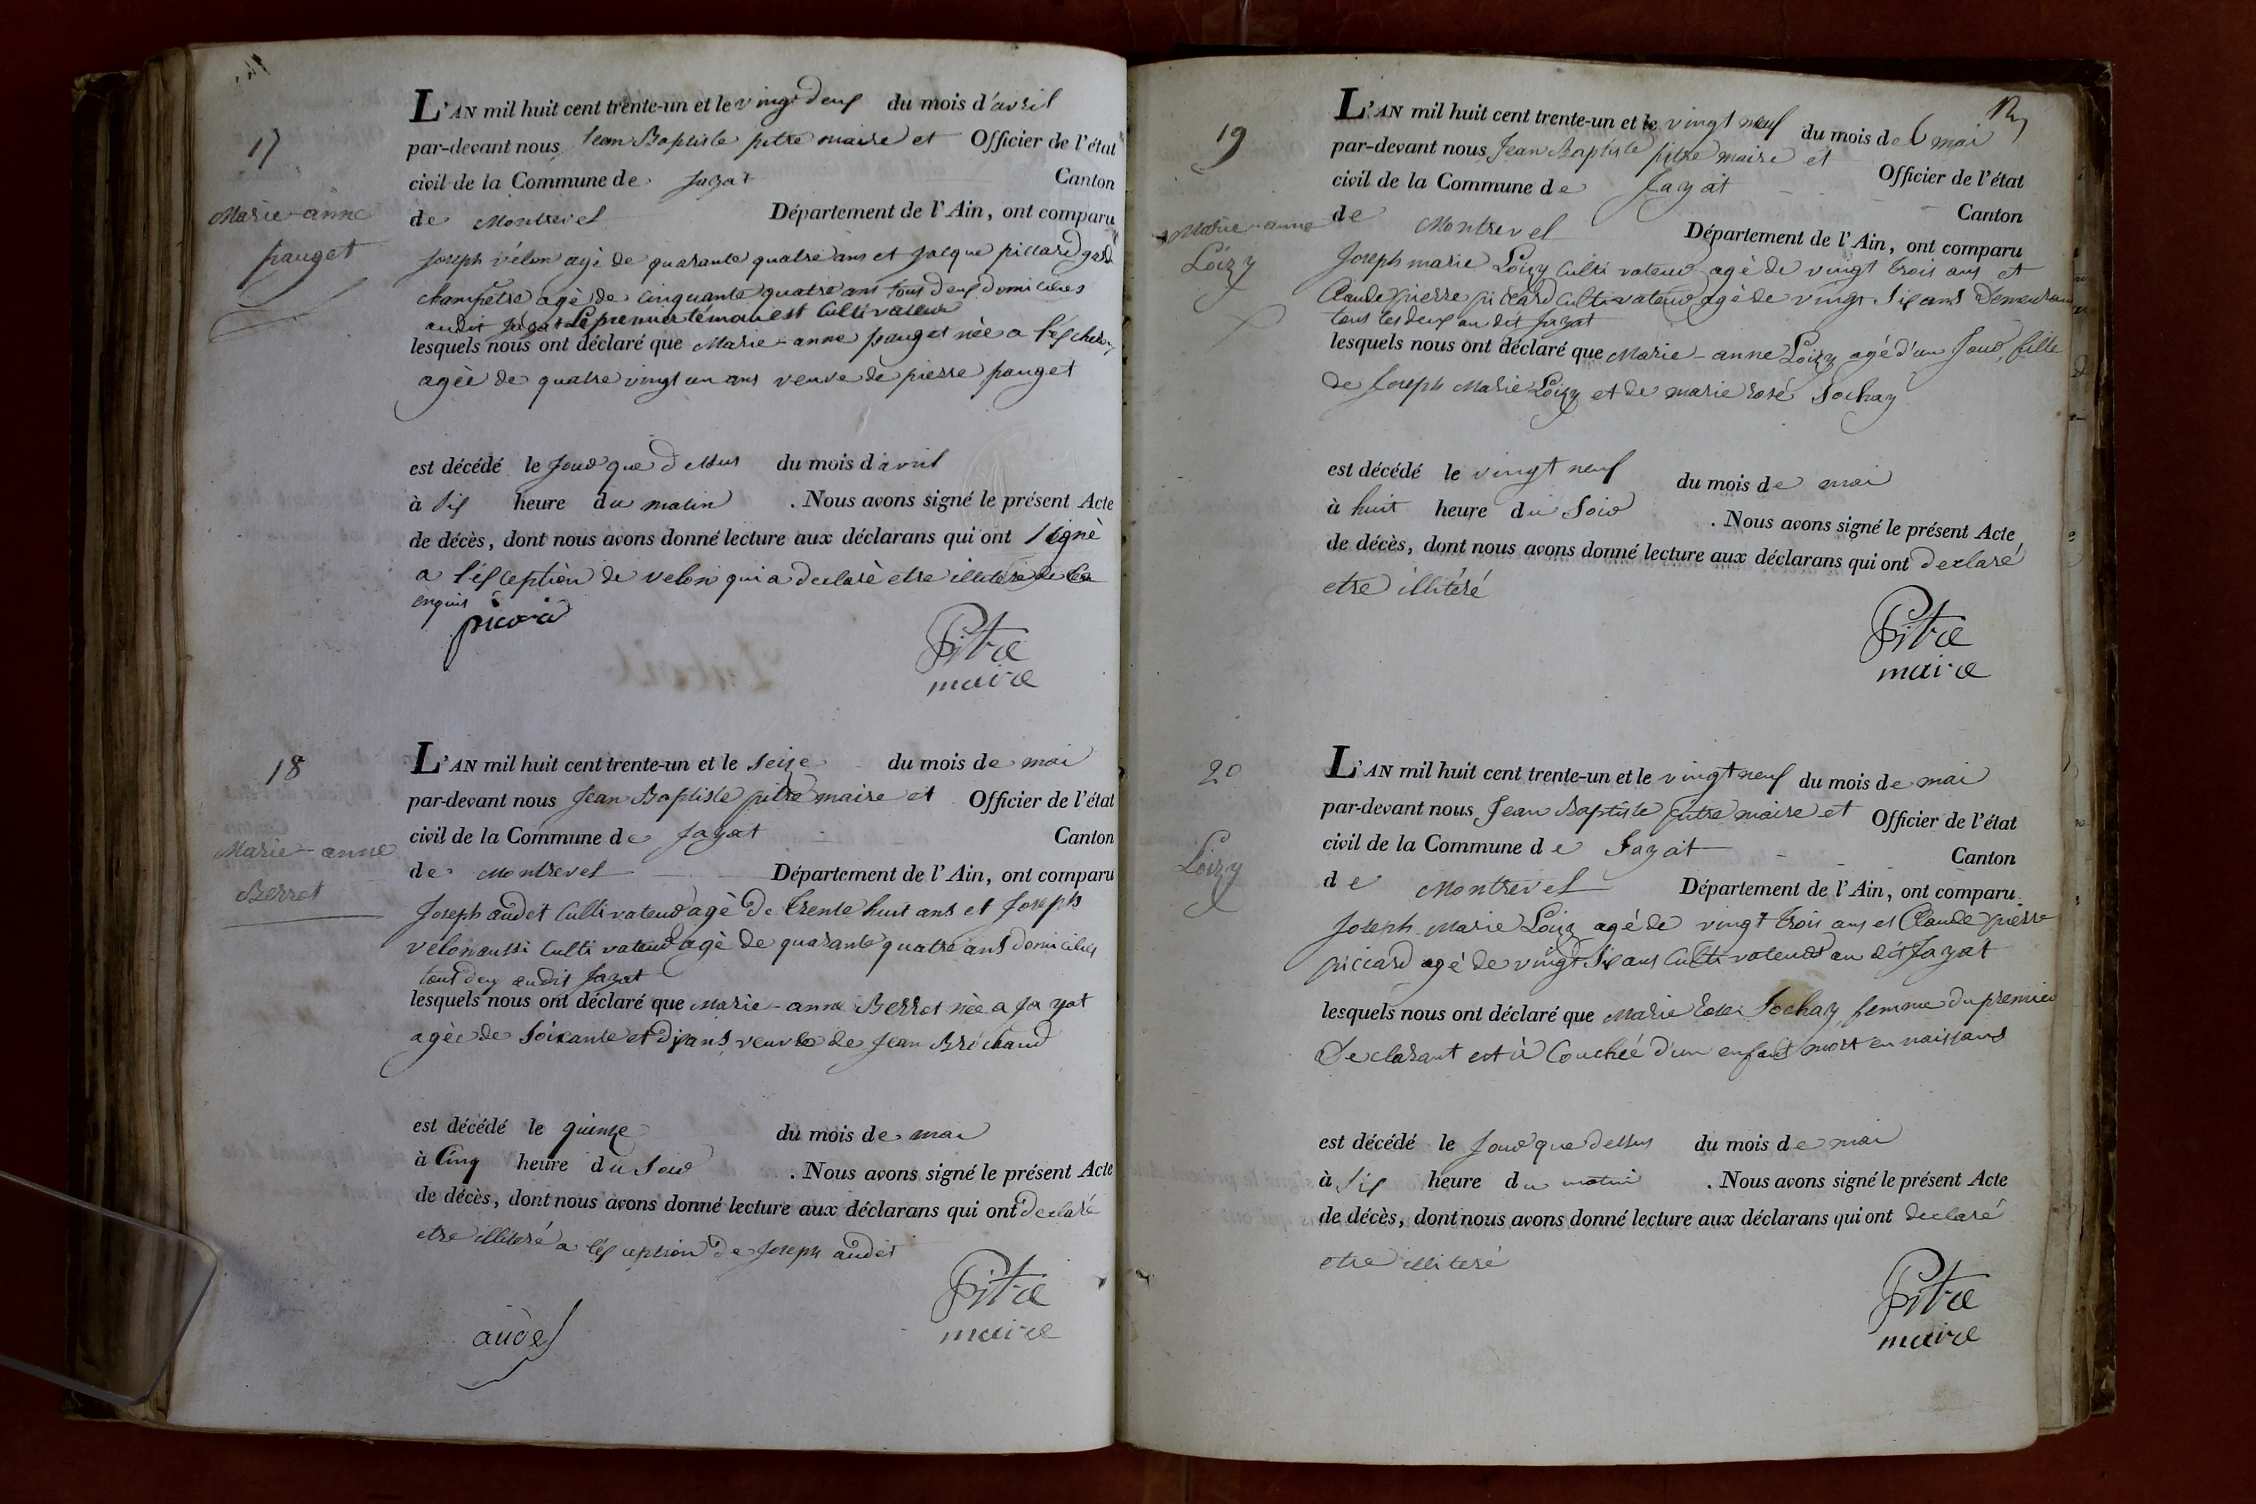 17
Marie-anne
pauget
L'AN mil huit cent trente-un et le vingt deux du mois d'avril
par-devant nous Jean Baptiste pitre maire et Officier de l'état
civil de la Commune de Jayat Canton
de Montrevel Département de l'Ain, ont comparu
Joseph vélon agé de quarante quatre ans et Jacque piccard garde
champêtre agé de cinquante quatre ans tous deux domiciliés
audit Jayat Le premier témoin est Cultivateur
lesquels nous ont déclaré que Marie-anne pauget née a
agée de quatre vingt un ans veuve de pierre pauget
est décédé le Jour que dessus du mois d'avril
à Six heure du matin . Nous avons signé le présent Acte
de décès, dont nous avons donné lecture aux déclarans qui ont Signé
a l'éxception de velon qui a declaré etre illiteré de ce
enquis
Pitre
maire
18
Marie-anne
Berret
L'AN mil huit cent trente-un et le Seize du mois de mai
par-devant nous Jean Baptiste pitre maire et Officier de l'état
civil de la Commune de Jayat Canton
de Montrevel Département de l'Ain, ont comparu
Joseph audet Cultivateur agé de trente huit ans et Joseph
velon aussi Cultivateur agé de quarante quatre ans domiciliés
tous deux audit Jayat
lesquels nous ont déclaré que Marie-anne Berret née a Jayat
agée de Soixante et dix ans veuve de Jean Bréchaud
est décédé le quinze du mois de mai
à Cinq heure du Soir . Nous avons signé le présent Acte
de décès, dont nous avons donné lecture aux déclarans qui ont declaré
etre illiteré a l'éxception de Joseph audet
audet
Pitre
maire
19
Marie-anne
Loizy
L'AN mil huit cent trente-un et le vingt neuf du mois de mai
par-devant nous Jean Baptiste pitre maire et Officier de l'état
civil de la Commune de Jayat Canton
de Montrevel Département de l'Ain, ont comparu
Joseph marie Loizy Cultivateur agé de vingt trois ans et
Claude pierre piccard cultivateur agé de vingt Six ans Demeurant
tous les deux au dit Jayat
lesquels nous ont déclaré que Marie-anne Loizy agé d'un Jour, fille
de Joseph Marie Loizy et de marie rosé Sochay
est décédé le vingt neuf du mois de mai
à huit heure du Soir . Nous avons signé le présent Acte
de décès, dont nous avons donné lecture aux déclarans qui ont declaré
etre illitéré
Pitre
maire
20
Loizy
L'AN mil huit cent trente-un et le vingt neuf du mois de mai
par-devant nous Jean Baptiste pitre maire et Officier de l'état
civil de la Commune de Jayat Canton
de Montrevel Département de l'Ain, ont comparu
Joseph Marie Loizy agé de vingt trois ans et Claude pierre
piccard agé de vingt Six ans Cultivateurs au dit Jayat
lesquels nous ont déclaré que Marie Rose Sochay femme du premier
Declarant est à Couchée d'un enfant mort en naissant
est décédé le Jour que dessus du mois de mai
à Six heure du matin . Nous avons signé le présent Acte
de décès, dont nous avons donné lecture aux déclarans qui ont declaré
etre illiteré
Pitre
maire